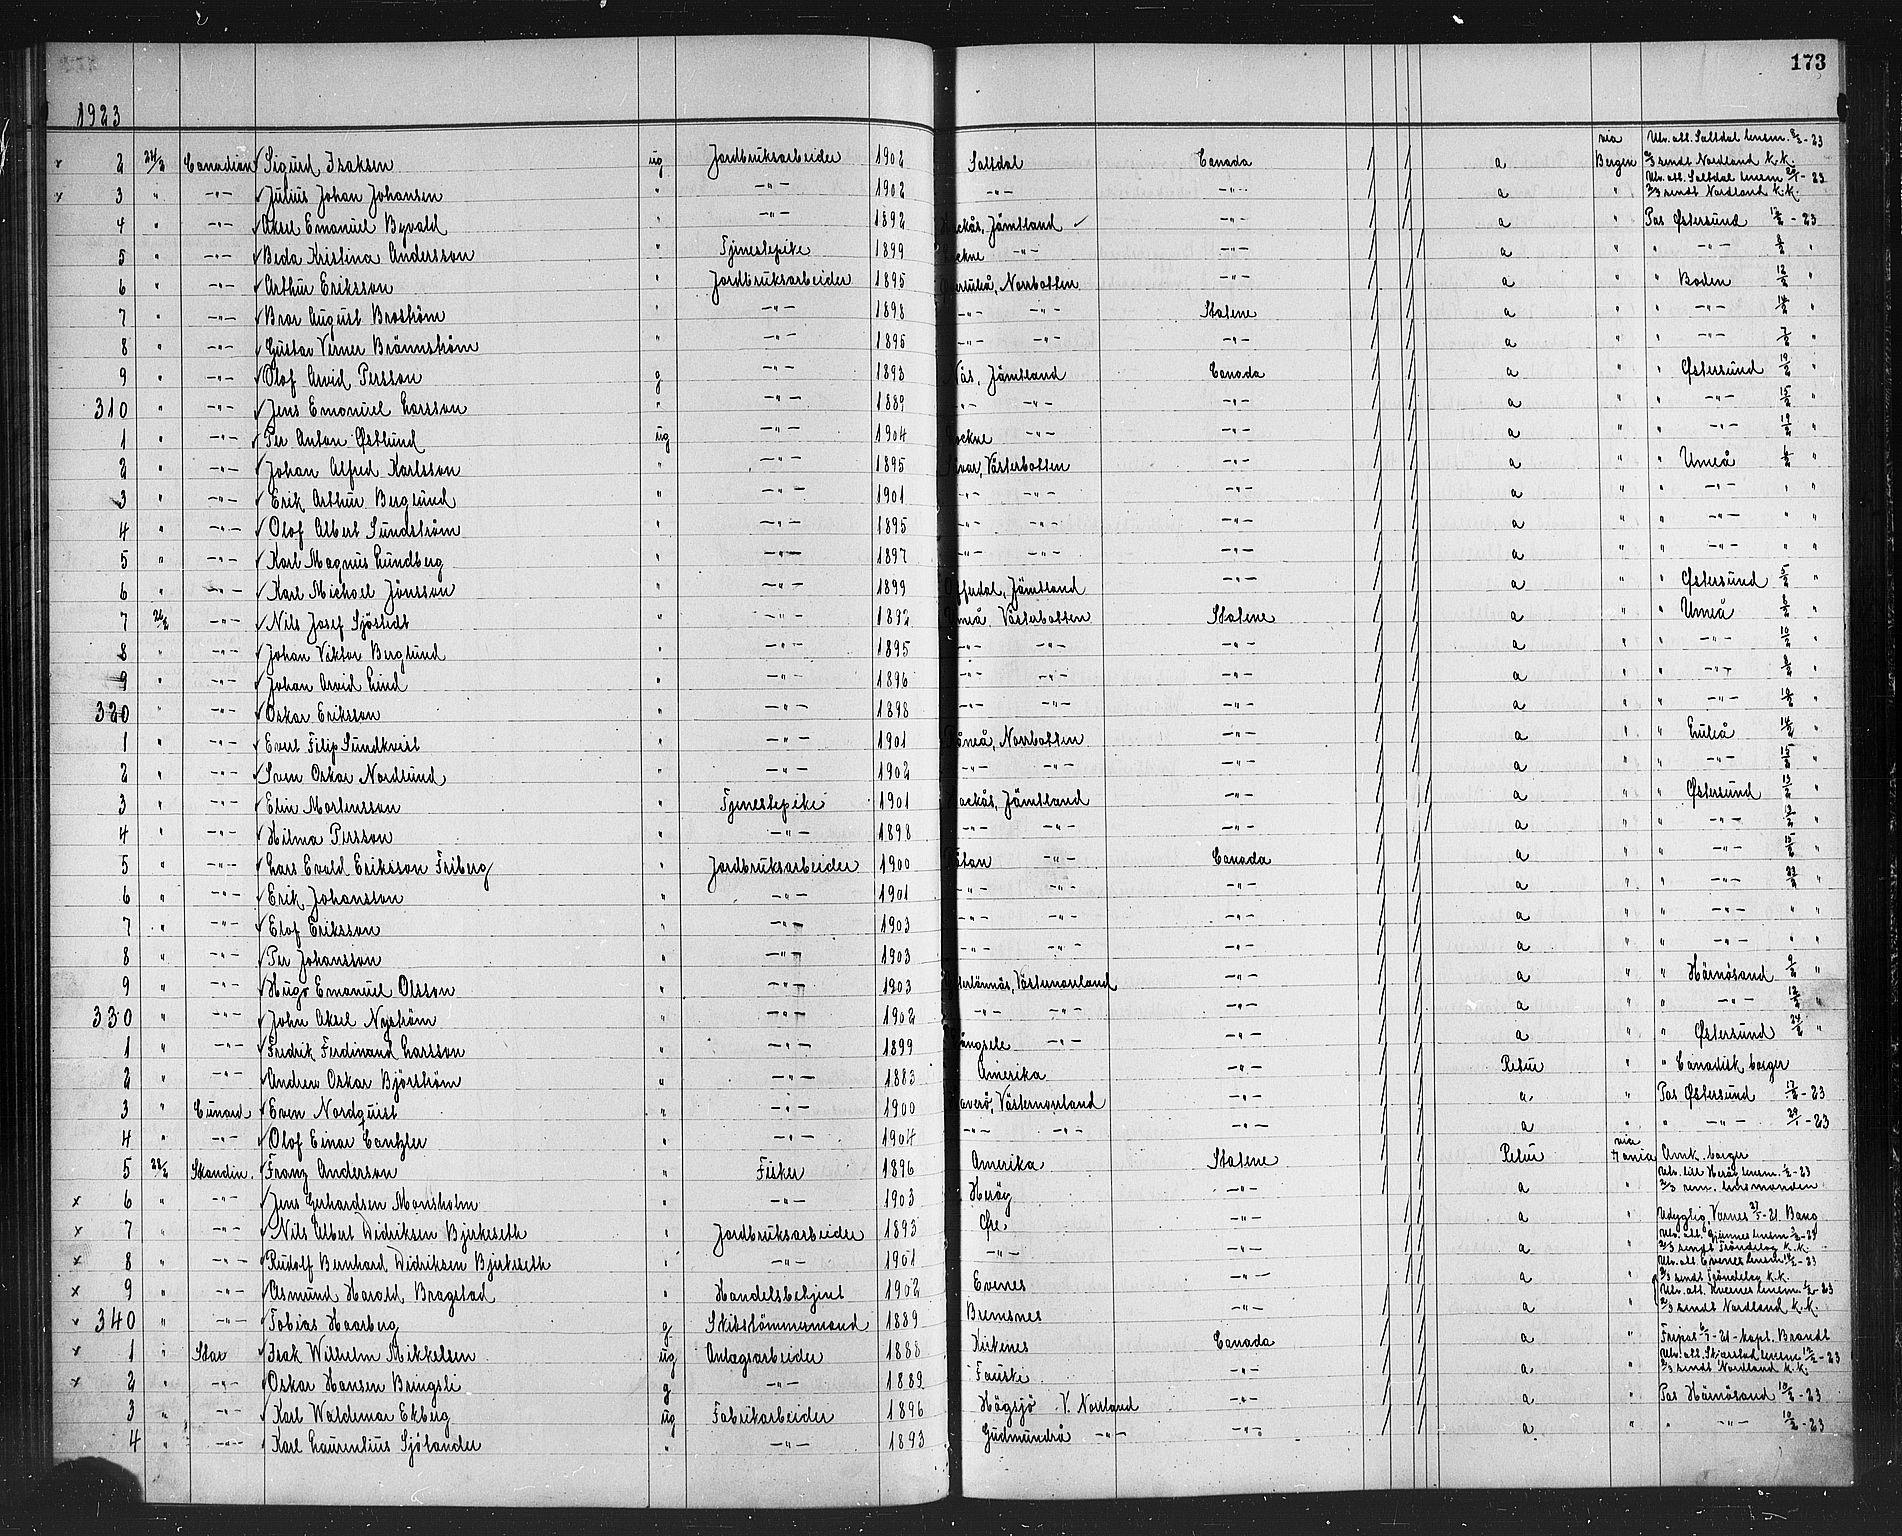 173
1923
2 24/2 Canadian Sigurd Isaksen ug Jordbruksarbeider 1902 Saltdal Canada a via Bergen Utv. att. Saltdal lensm. 8/2-23 2/3 sendt Nordland k.k.
3 " -"- Julius Johan Johansen " -"- 1902 -"- -"- a " Utv. att. Saltdal lensm 2/3 sendt Nordland k.k.
4 " -"- Aksel Emanuel Byvald " -"- 1892 Jämtland -"- a " Pas Østersund 12/2-23
5 " -"- Beda Kristina Andersson " Tjenestepike 1899 -"- -"- a " " -"- 8/2 "
6 " -"- Arthur Eriksson " Jordbruksarbeider 1895 Norrbotten -"- a " " Boden 12/2 "
7 " -"- Bror August Broström " -"- 1898 -"- -"- Statene a " " -"- "
8 " -"- Gustav Verner Brännström " -"- 1895 -"- -"- -"- a " " -"- 7/2 "
9 " -"- Olof Arvid Persson g -"- 1893 Nås, Jämtland Canada a " " Østersund 10/2 "
310 " -"- Jens Emanuel Larsson " -"- 1889 -"- -"- -"- a " " -"- 15/2 "
1 " -"- Per Anton Østlund ug -"- 1904 -"- -"- a " " -"- "
2 " -"- Johan Alfred Karlsson " -"- 1895 Västerbotten -"- a " " Umeå "
3 " -"- Erik Arthur Berglund " -"- 1901 -"- -"- -"- a " " -"- " "
4 " -"- Olof Albert Sundström " -"- 1895 -"- -"- -"- a " " -"- " "
5 " -"- Karl Magnus Lundberg " -"- 1897 -"- -"- -"- a " " -"- " "
6 " -"- Karl Michael Jönsson " -"- 1899 Jämtland -"- a " " Østersund 5/2 "
7 26/2 -"- Nils Josef Sjöstedt " -"- 1892 Västerbotten Statene a " " Umeå "
8 " -"- Johan Viktor Berglund " -"- 1895 -"- -"- -"- a " " -"- 10/2 "
9 " -"- Johan Arvid Lind " -"- 1896 -"- -"- -"- a " " -"- "
320 " -"- Oskar Eriksson " -"- 1898 -"- -"- -"- a " " -"- "
1 " -"- Evert Filip Sundkvist " -"- 1901 Råneå, Norrbotten -"- a " " Luleå 14/2 "
2 " -"- Sven Oskar Nordlund " -"- 1902 -"- -"- -"- a " " -"- 15/2 "
3 " -"- Elin Mårtensson " Tjenestepike 1901 Jämtland -"- a " " Østersund 13/2 "
4 " -"- Hilma Persson " -"- 1898 -"- -"- -"- a " " -"- "
5 " -"- Lars Evald Eriksson Friberg " Jordbruksarbeider 1900 -"- Canada a " " -"- 15/2 "
6 " -"- Erik Johansson " -"- 1901 -"- -"- -"- a " " -"- "
7 " -"- Elof Eriksson " -"- 1903 -"- -"- -"- a " " -"- " "
8 " -"- Per Johansson " -"- 1903 -"- -"- -"- a " " -"- " "
9 " -"- Hugo Emanuel Olsson " -"- 1903 Västernorrland -"- a " " Härnösand 9/2 "
330 " -"- John Aksel Nyström " -"- 1902 -"- -"- -"- a " " -"- 12/2 "
1 " -"- Fredrik Ferdinand Larsson " -"- 1899 Långsele -"- -"- a " " Østersund "
2 " -"- Andrew Oskar Björström " -"- 1883 Amerika -"- Retur " " Canadisk borger
3 " Cunard Even Nordquist " -"- 1900 Haverö, Västernorrland -"- a " Pas Østersund 12/2-23
4 " -"- Olof Einar Cantzler " -"- 1904 -"- -"- -"- a " " -"- 29/1-23
5 28/2 Skandin. Franz Anderson " Fisker 1896 Amerika Statene Retur via Amk. borger
6 " -"- Jens Gerhardsen Mansholm " -"- 1903 Herøy -"- a " Utv. till Herøy lensm. 1/2-23 2/3 rem. lensmanden
7 " -"- Nils Albert Didriksen Bjerkeseth " Jordbruksarbeider 1893 Øre -"- a " Udygtig, Varnes 27/5-21. Bang
8 " -"- Rudolf Bernhard Didriksen Bjerkeseth " -"- 1901 -"- -"- a " Utv. att. Gjemnes lensm. 2/3 sendt Trøndelag k.k.
9 " -"- Asmund Harald Brogstad " Handelsbetjent 1902 Evenes -"- a Utv. att. Evenes lensm. 2/3 sendt Trøndelag k.k.
340 " -"- Tobias Haarberg g Skibstømmermand 1889 Bremsnes -"- a " Utv. att. Kvernes lensm. 2/3 sendt Nordland k.k.
1 " Star Isak Wilhelm Mikkelsen ug Anlægsarbeider 1888 Kirkenes Canada a " Fripas 6/7-21 - kapt. Brandt
2 " -"- Oskar Hansen Bringsli g -"- 1889 Fauske -"- a " Utv. att. Skjerstad lensm 12/2-23 2/3 sendt Nordland k.k.
3 " -"- Karl Waldemar Ekberg ug Fabrikarbeider 1896 Högsjö V. Norrland -"- a " Pas Härnösand 10/2-23
4 " -"- Karl Laurentius Sjölander " -"- 1893 Gudmundrå -"- -"- a " " -"- 10/2-23